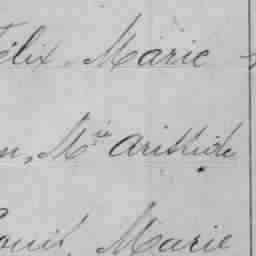 Félix Marie
n, Mie Aristide
Louis, Marie